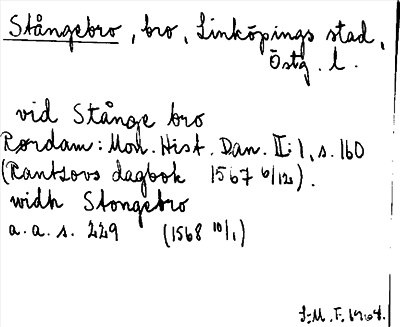 Stångebro, bro, Linköpings stad,
Östg. l.
vid Stånge bro
Rørdam: Mon. Hist. Dan. II:1, s. 160
(Rantzovs dagbok 1567 6/12).
widh Stongebro
a. a. s. 229 (1568 10/1)